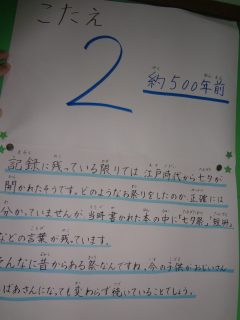 こたえ
2
約500年前
記録に残っている限りでは江戸時代から七夕が
開かれたそうです。どのようなお祭りをしたのか正確には
分かっていませんが、当時書かれた本の中に「七夕祭」、「短冊」
などの言葉が残っています。
そんなに昔からある祭なんですね。今の子供がおじいさん
ばあさんになっても変わらず続いていることでしょう。